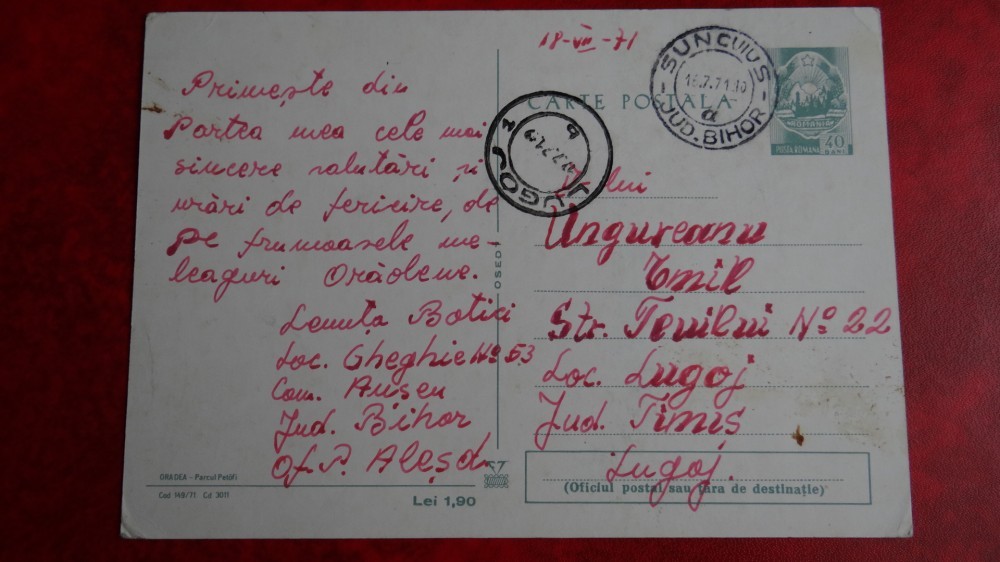 Primește din
Partea mea cele mai
sincere salutări și
urări de fericire, de
pe frumoasele me-
leaguri Orădene.
Lenuța Botici
Loc. Gheghie No 53
Com. Aușeu
Jud. Bihor
Of. P. Aleșd
ORADEA - Parcul Petöfi
Cod 149/71 Cd 3011
Lei 1,90
OSEDI
18-VII-71
CARTE POSTALA
SUNCUIUS
18.7.71.10
a
JUD. BIHOR
LUGOJ 1
b
ROMANIA
POSTA ROMANA
40
BANI
Ungureanu
Emil
Str. Teiului No 22
Loc. Lugoj
Jud. Timiș
Lugoj.
(Oficiul poștal sau țara de destinație)